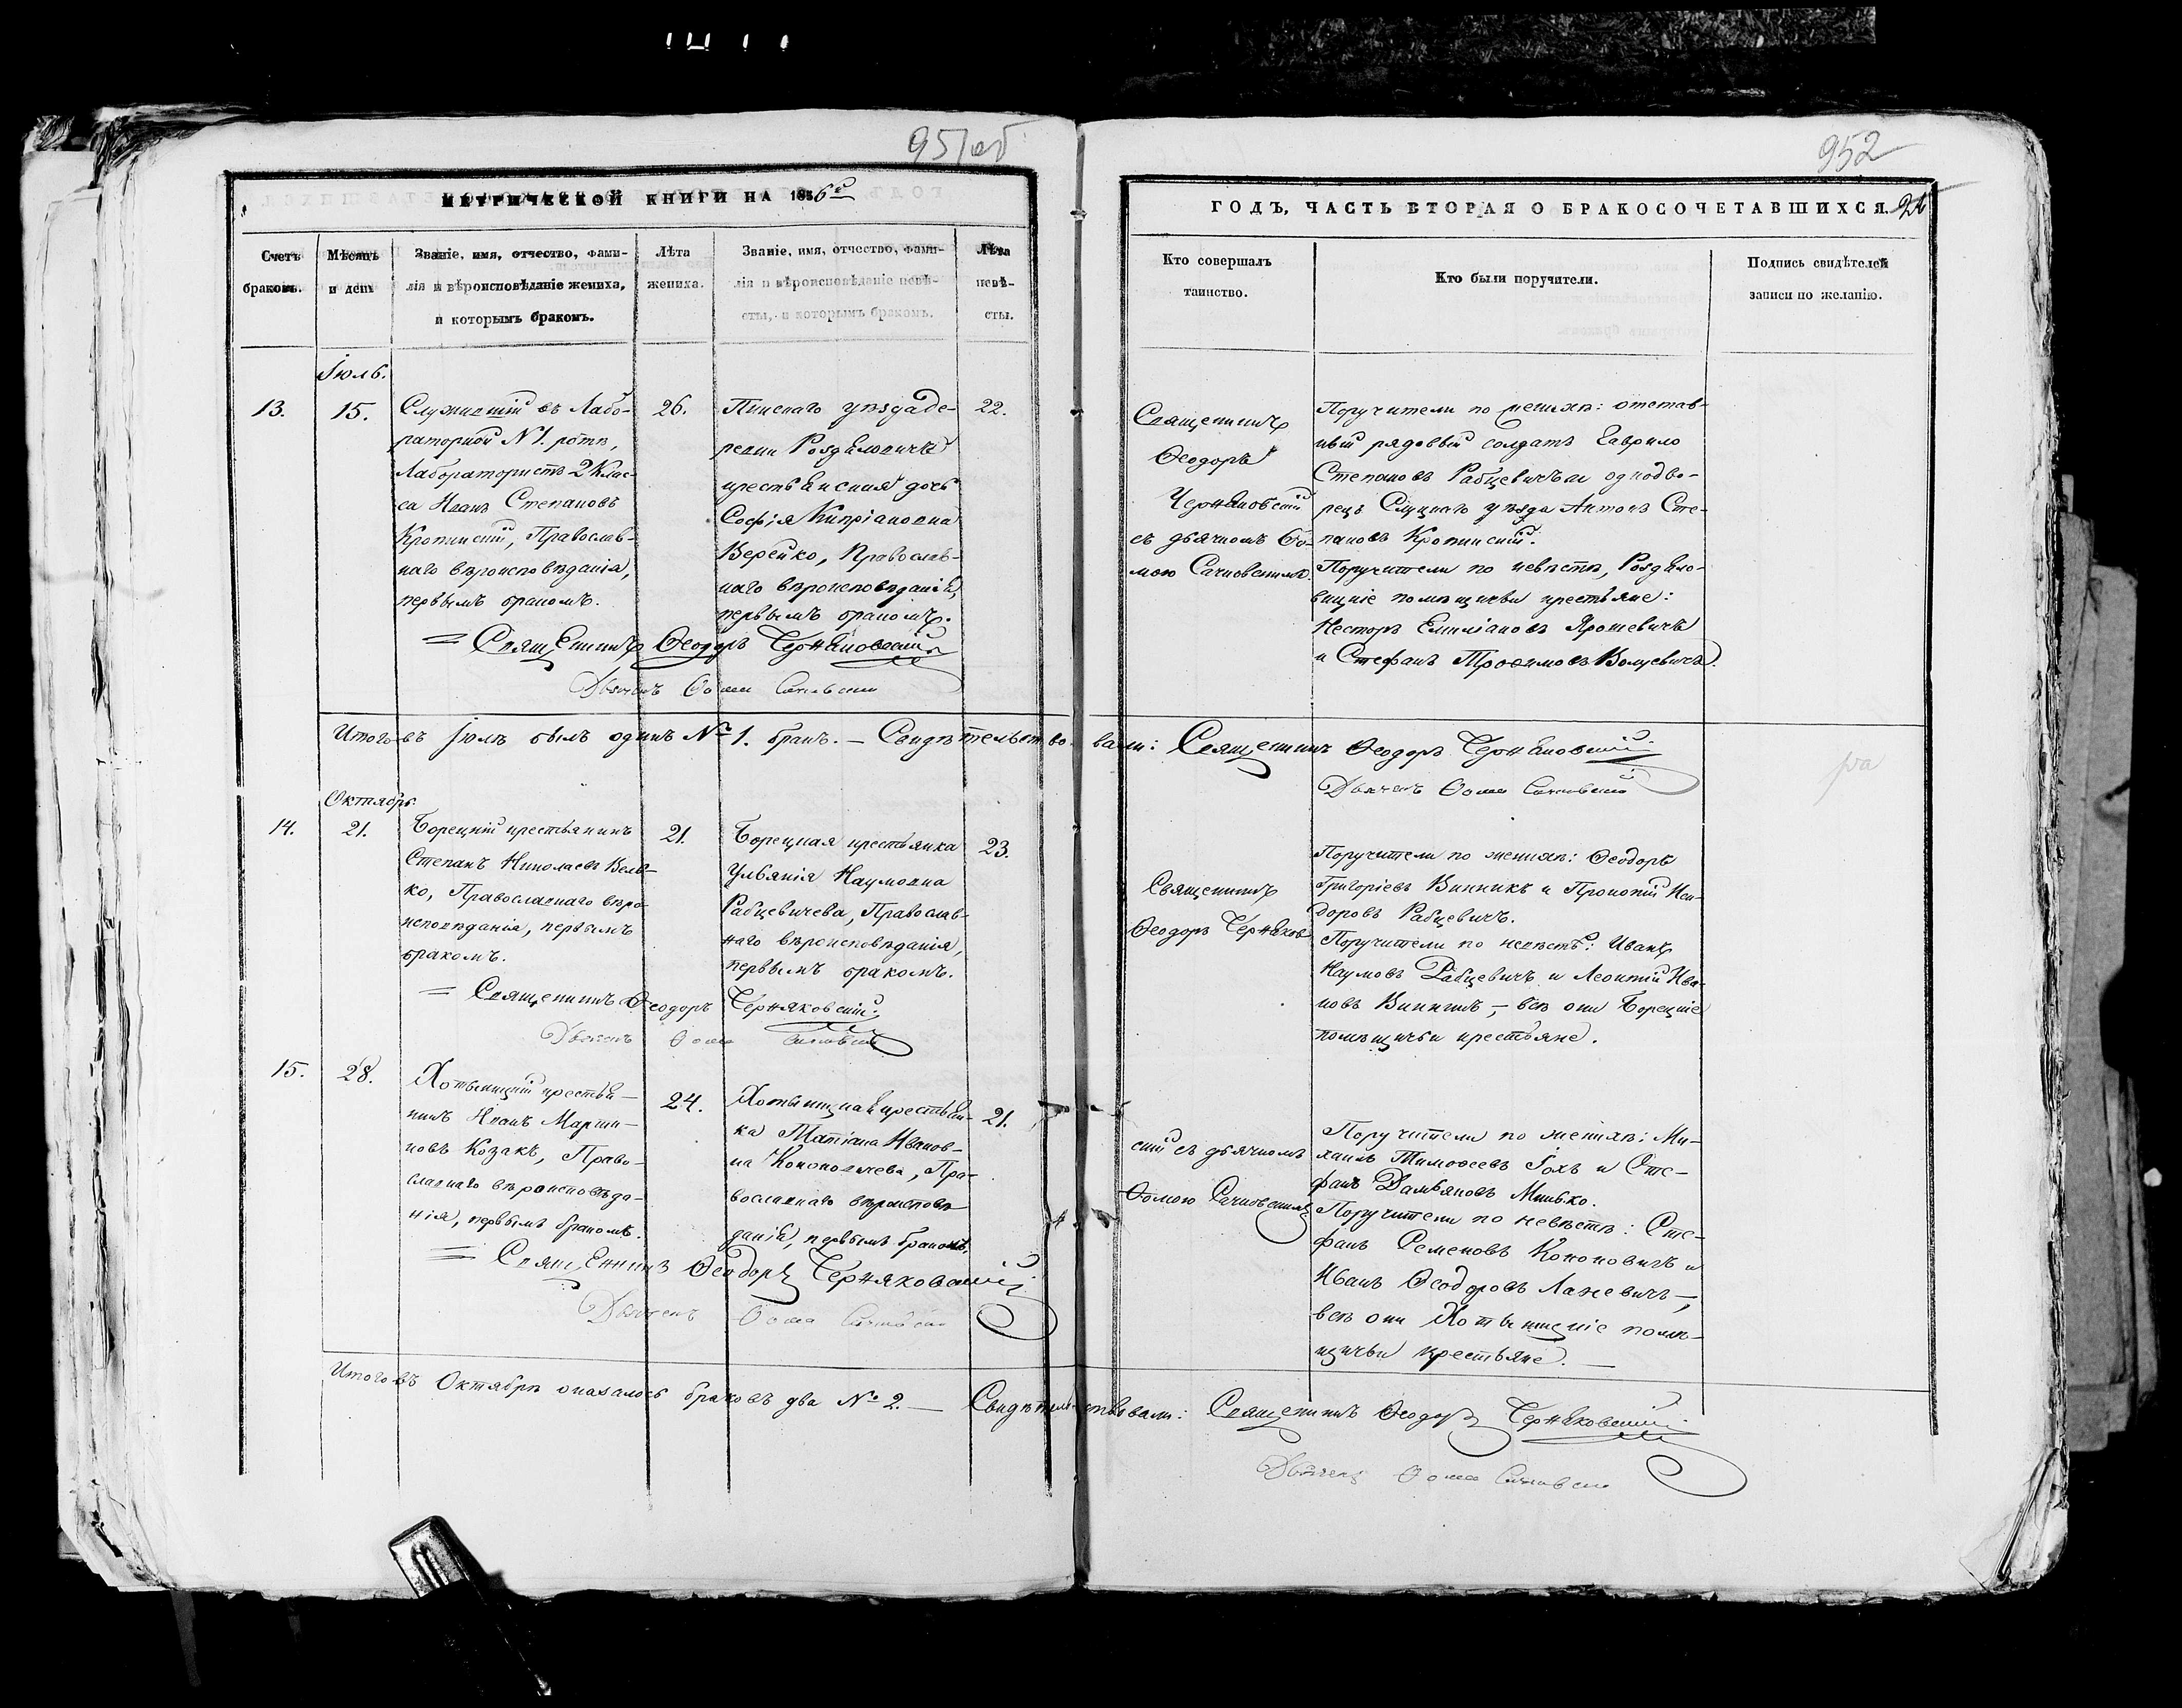 951об
МЕТРИЧЕСКОЙ КНИГИ НА 1856й
Счетъ браковъ.
Мѣсяцъ и день
Званіе, имя, отчество, фами-
лія и вѣроисповѣданіе жениха,
и которымъ бракомъ.
Лѣта
жениха.
Званіе, имя, отчество, фами-
лія и вѣроисповѣданіе невѣ-
сты, и которымъ бракомъ.
Лѣта
невѣ-
сты.
Іюль.
13.
15.
Служащій въ Лабо-
раторной №1. ротѣ,
Лаборатористъ 2 Клас-
са Иванъ Степановъ
Кропинскій, Православ-
наго вѣроисповѣданія,
первымъ бракомъ.
26.
Пинскаго уѣзда де-
ревни Роздяловичъ
крестьянская дочь
Софія Кипріановна
Верейко, Православ-
наго вѣроисповѣданія,
первымъ бракомъ.
22.
= Священникъ Ѳеодоръ Черняковскій
Дьячекъ Ѳома Сачковскій
Итого въ Іюлѣ былъ одинъ № 1. бракъ. — Свидѣтельство-
Октябрь.
14.
21.
Борецкій крестьянинъ
Степанъ Николаевъ Вель-
ко, Православнаго вѣро-
исповѣданія, первымъ
бракомъ.
21.
Борецкая крестьянка
Ульянія Наумовна
Рабцевичева, Православ-
наго вѣроисповѣданія,
первымъ бракомъ.
23.
= Священникъ Ѳеодоръ Черняковскій.
Дьячекъ Ѳома Сачковскій
15.
28.
Хотыницкій крестья-
нинъ Иванъ Марти-
новъ Козакъ, Право-
славнаго вѣроисповѣда-
нія, первымъ бракомъ.
24.
Хотыницкая крестьян-
ка Татіана Иванов-
на Кононовичева, Пра-
вославнаго вѣроисповѣ-
данія, первымъ бракомъ.
21.
= Священникъ Ѳеодоръ Черняковскій
Дьячекъ Ѳома Сачковскій
Итого въ Октябрѣ оказалось браковъ два № 2. — Свидѣтельствовали:
952
ГОДЪ, ЧАСТЬ ВТОРАЯ О БРАКОСОЧЕТАВШИХСЯ.
Кто совершалъ
таинство.
Кто были поручители.
Подпись свидѣтелей
записи по желанію.
Священникъ
Ѳеодоръ
Черняковскій
съ дьячкомъ Ѳо-
мою Сачковскимъ.
Поручители по женихѣ: отстав-
ный рядовый солдатъ Гаврило
Степановъ Рабцевичъ и однодво-
рецъ Слуцкаго уѣзда Антонъ Сте-
пановъ Кропинскій.
Поручители по невѣстѣ, Роздяло-
вицкіе помѣщичьи крестьяне:
Несторъ Емиліановъ Ярошевичъ
и Стефанъ Трофимовъ
вали: Священникъ Ѳеодоръ Черняковскій
Дьячекъ Ѳома Сачковскій
Священникъ
Ѳеодоръ Черняков-
Поручители по женихѣ: Ѳеодоръ
Григоріевъ Винникъ и Прокопій Иси-
доровъ Рабцевичъ.
Поручители по невѣстѣ: Иванъ
Наумовъ Рабцевичъ и Леонтій Ива-
новъ Винникъ, — всѣ они Борецкіе
помѣщичьи крестьяне.
скій съ дьячкомъ
Ѳомою Сачковскимъ
Поручители по женихѣ: Ми-
хаилъ Тимоѳеевъ Іохъ и Сте-
фанъ Дамьяновъ Минько.
Поручители по невѣстѣ: Сте-
фанъ Семеновъ Кононовичъ и
Иванъ Ѳеодоровъ Лажевичъ —,
всѣ они Хотыницкіе помѣ-
щичьи крестьяне. —
Священникъ Ѳеодоръ Черняковскій
Дьячекъ Ѳома Сачковскій